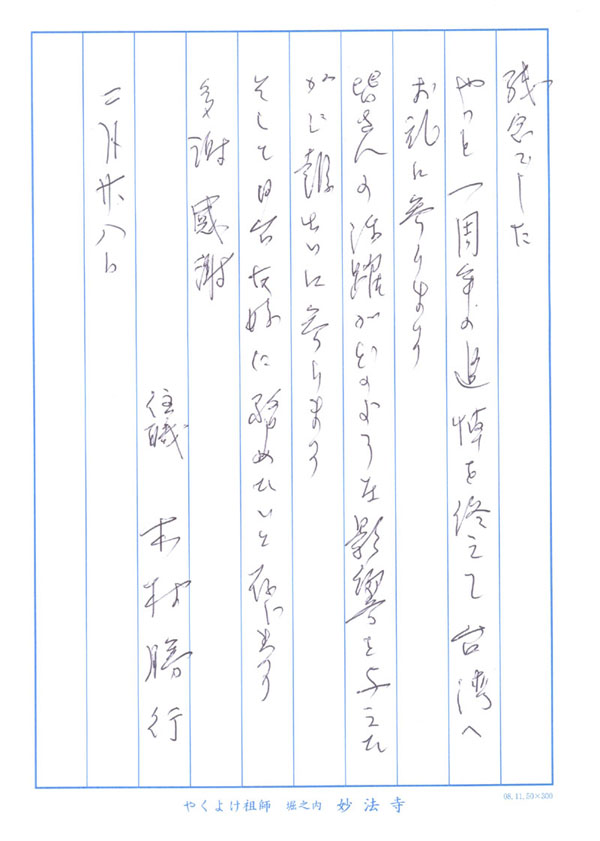 残念でした
やっと一周年の追悼を終えて台湾へ
お礼に参ります
皆さんの活躍がどのような影響を与えた
かご報告に参ります
そして日台友好に努めたいと存じます
多謝 感謝
住職 木村勝行
二月廿八日
やくよけ祖師 堀之内 妙法寺
08.11.50×300